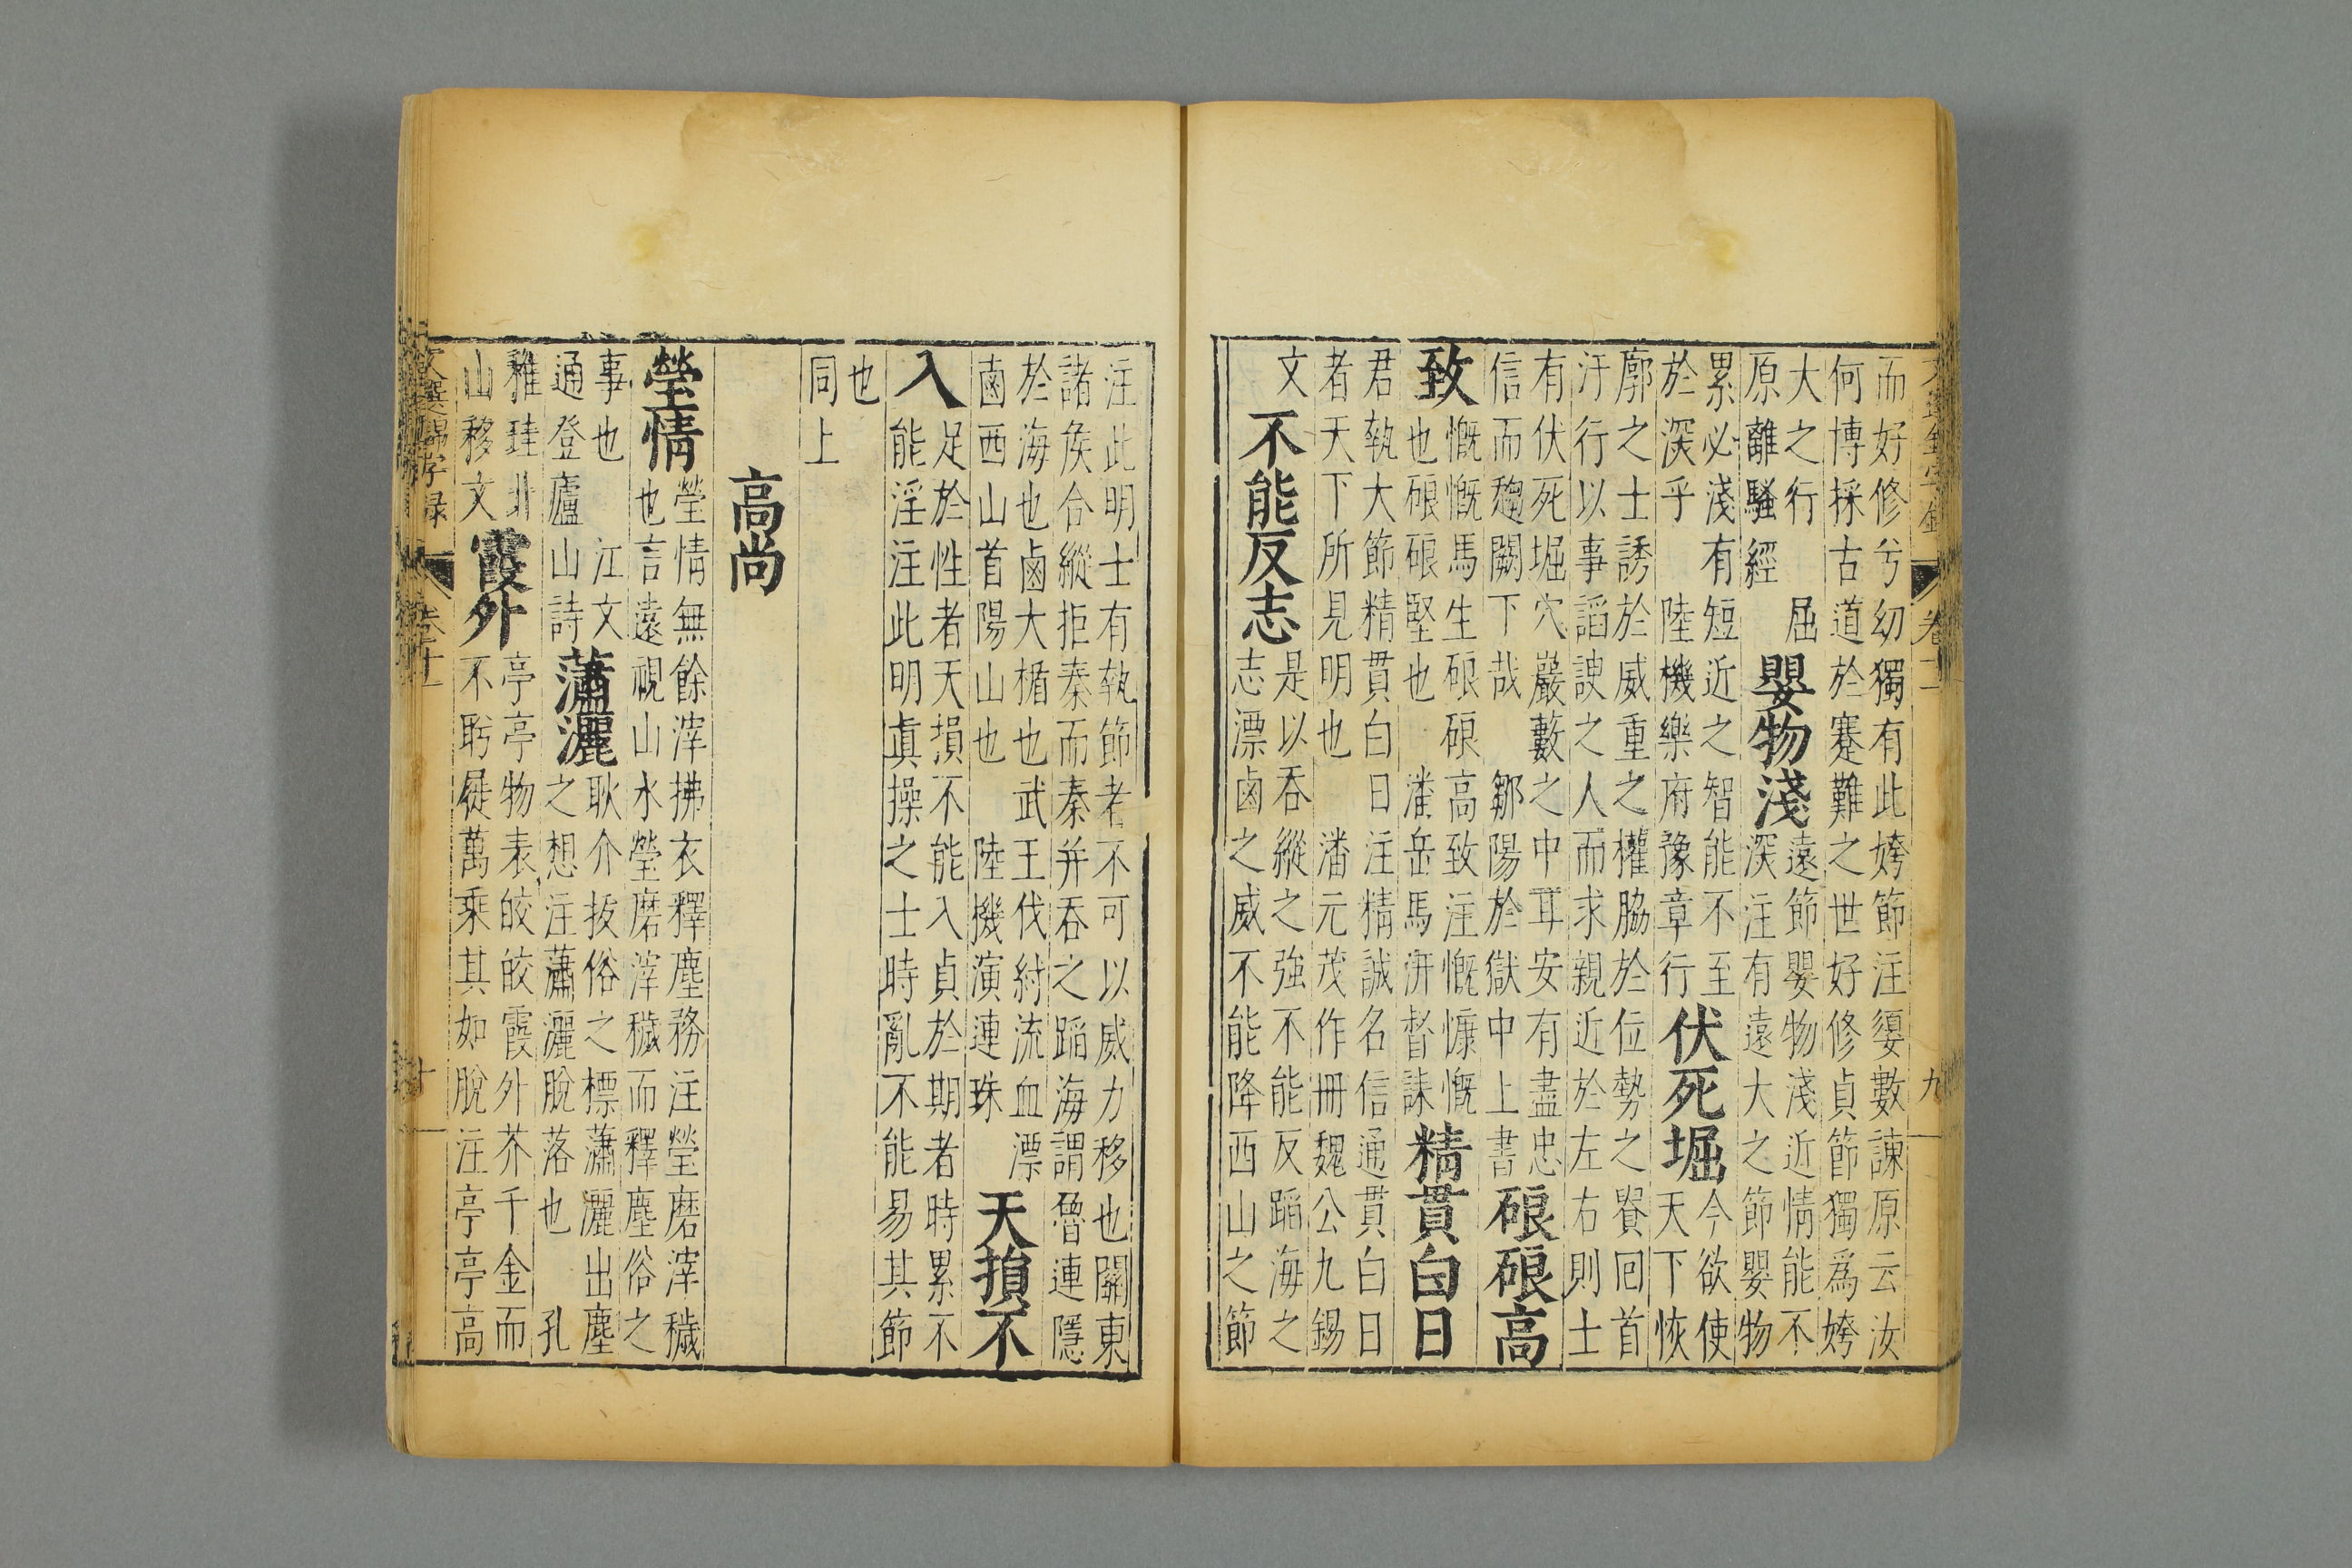 文選錦字錄 卷十一 九
而好修兮幼獨有此姱節注嬃數諫原云汝
何博採古道於蹇難之世好修貞節獨為姱
大之行 屈
原離騷經
嬰物淺
遠節嬰物淺近情能不
深注有遠大之節嬰物
累必淺有短近之智能不至
於深乎 陸機樂府豫章行
伏死堀
今欲使
天下恢
廓之士誘於威重之權脇於位勢之貴回首
汙行以事諂諛之人而求親近於左右則士
有伏死堀穴巖藪之中耳安有盡忠
信而趨闕下哉 鄒陽於獄中上書
硠硠高
致
慨慨馬生硠硠高致注慨慷慨
也硠硠堅也 潘岳馬汧督誄
精貫白日
君執大節精貫白日注精誠名信通貫白日
者天下所見明也 潘元茂作冊魏公九錫
文
不能反志
是以吞縱之強不能反蹈海之
志漂鹵之威不能降西山之節
注此明士有執節者不可以威力移也關東
諸侯合縱拒秦而秦并吞之蹈海謂魯連隱
於海也鹵大楯也武王伐紂流血漂
鹵西山首陽山也 陸機演連珠
天損不
入
足於性者天損不能入貞於期者時累不
能淫注此明真操之士時亂不能易其節
也
同上
高尚
瑩情
瑩情無餘滓拂衣釋塵務注瑩磨滓穢
也言遠視山水瑩磨滓穢而釋塵俗之
事也 江文
通登廬山詩
蕭灑
耿介拔俗之標蕭灑出塵
之想注蕭灑脫落也 孔
雅珪北
山移文
霞外
亭亭物表皎皎霞外芥千金而
不眄屣萬乘其如脫注亭亭高
文選錦字錄 卷十一 十